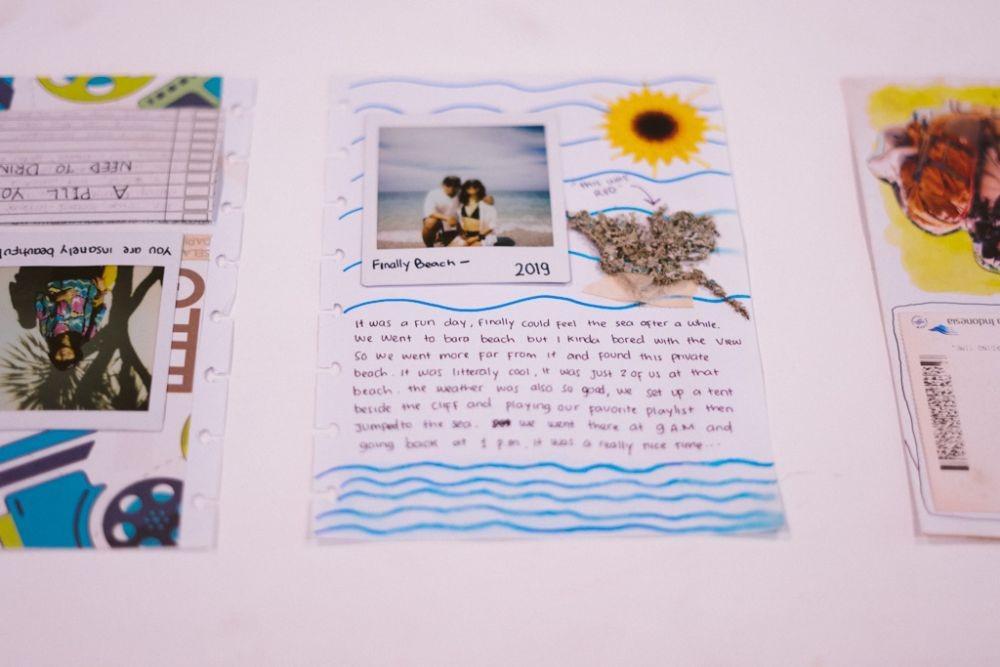 NEED TO DRIN
A PILL YO
You are insanely beautiful
Finally Beach –
2019
"THIS WAS
RED"
It was a fun day, Finally could feel the sea after a while.
We went to bara beach but I kinda bored with the view
So we went more far from it and found this private
beach. It was litteraly cool, it was just 2 of us at that
beach. the weather was also so good, we set up a tent
beside the cliff and playing our favorite playlist then
Jumped to the sea. we went there at 9 AM and
going back at 1 p.m, it was a really nice time...
Indonesia